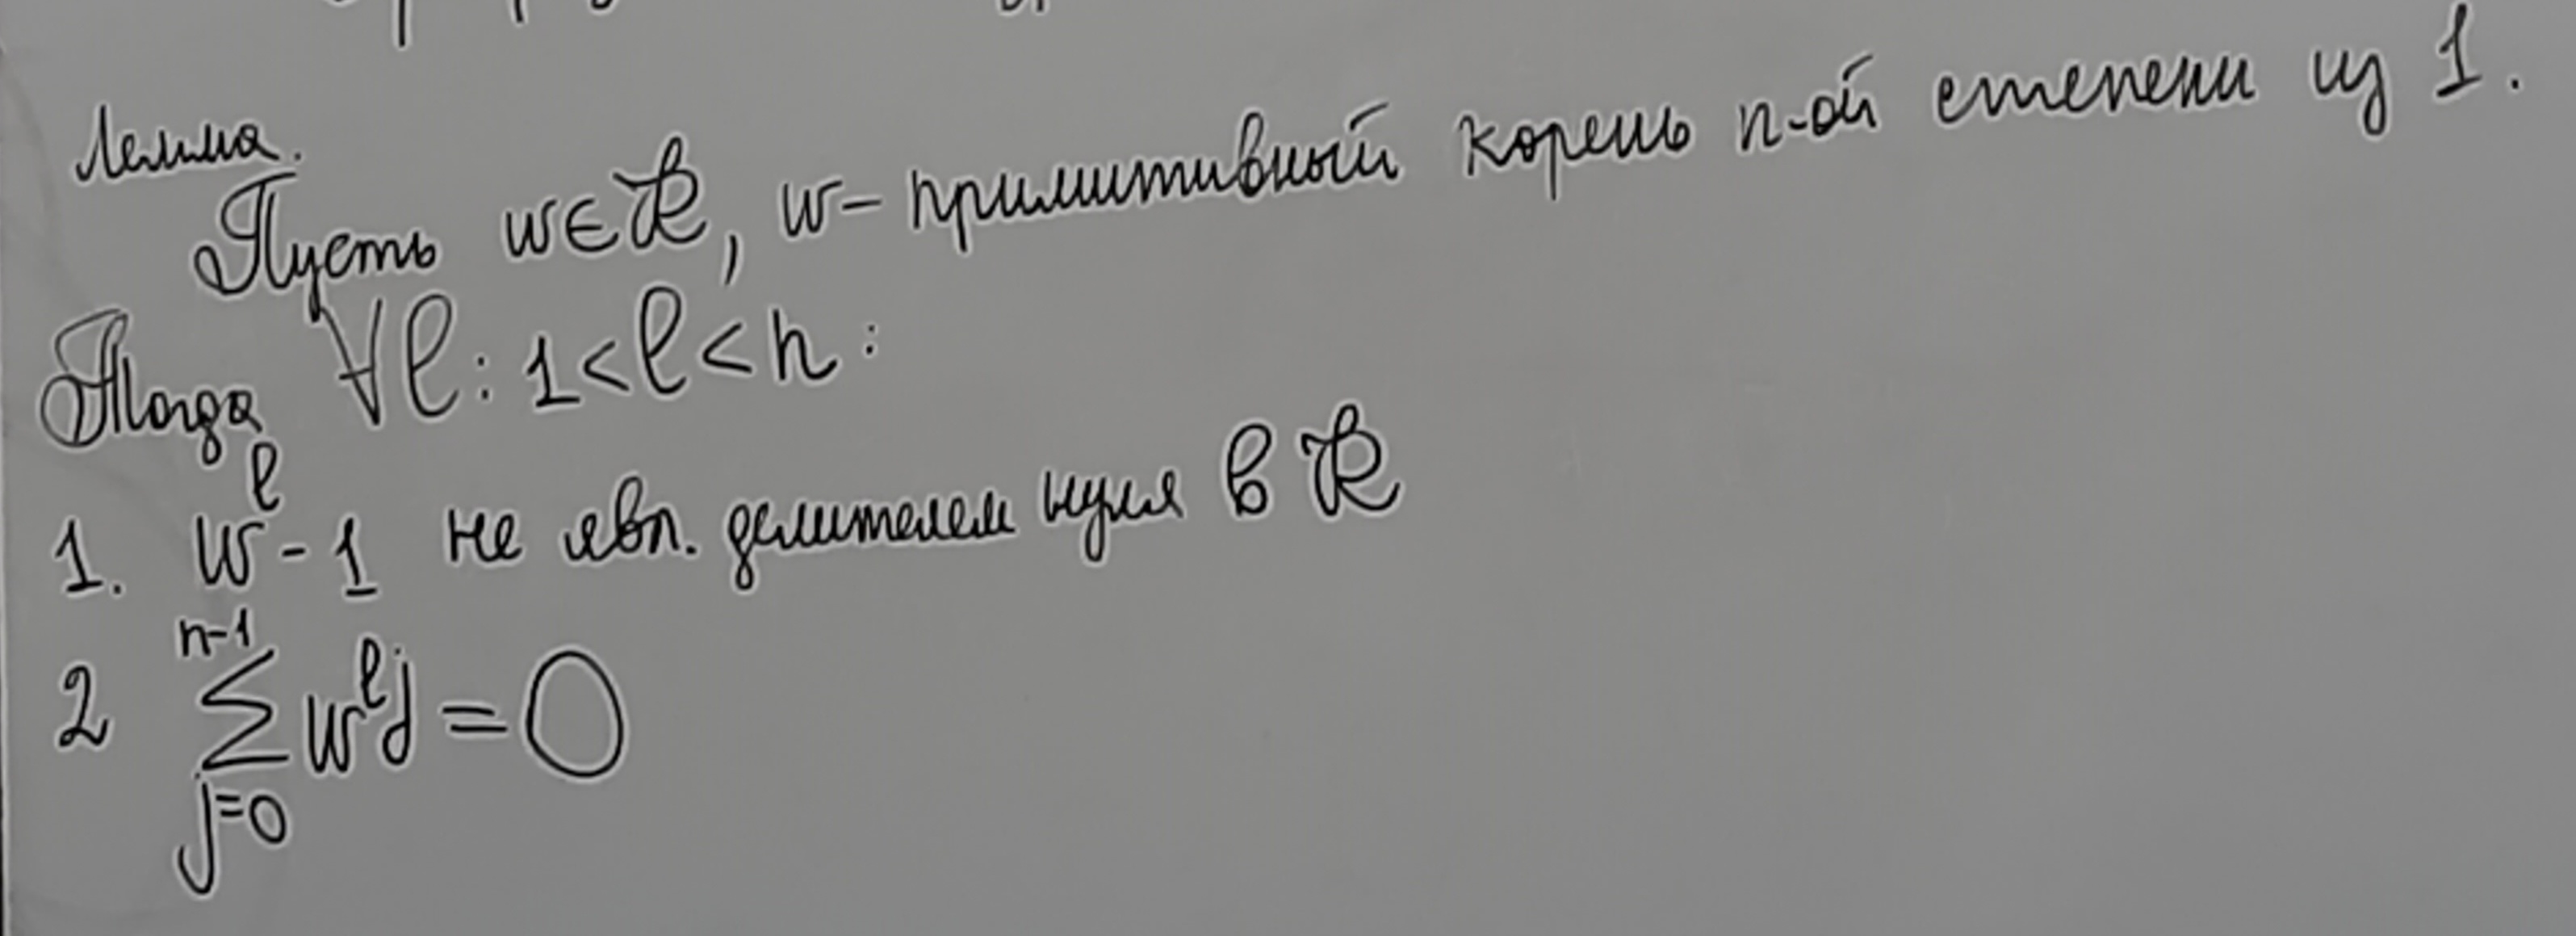 Лемма.
Пусть w∈R, w - примитивный корень n-ой степени из 1.
Тогда ∀ℓ: 1<ℓ<n:
1. w^ℓ - 1 не явл. делителем нуля в R
2 ∑_{j=0}^{n-1} w^{ℓj} = 0